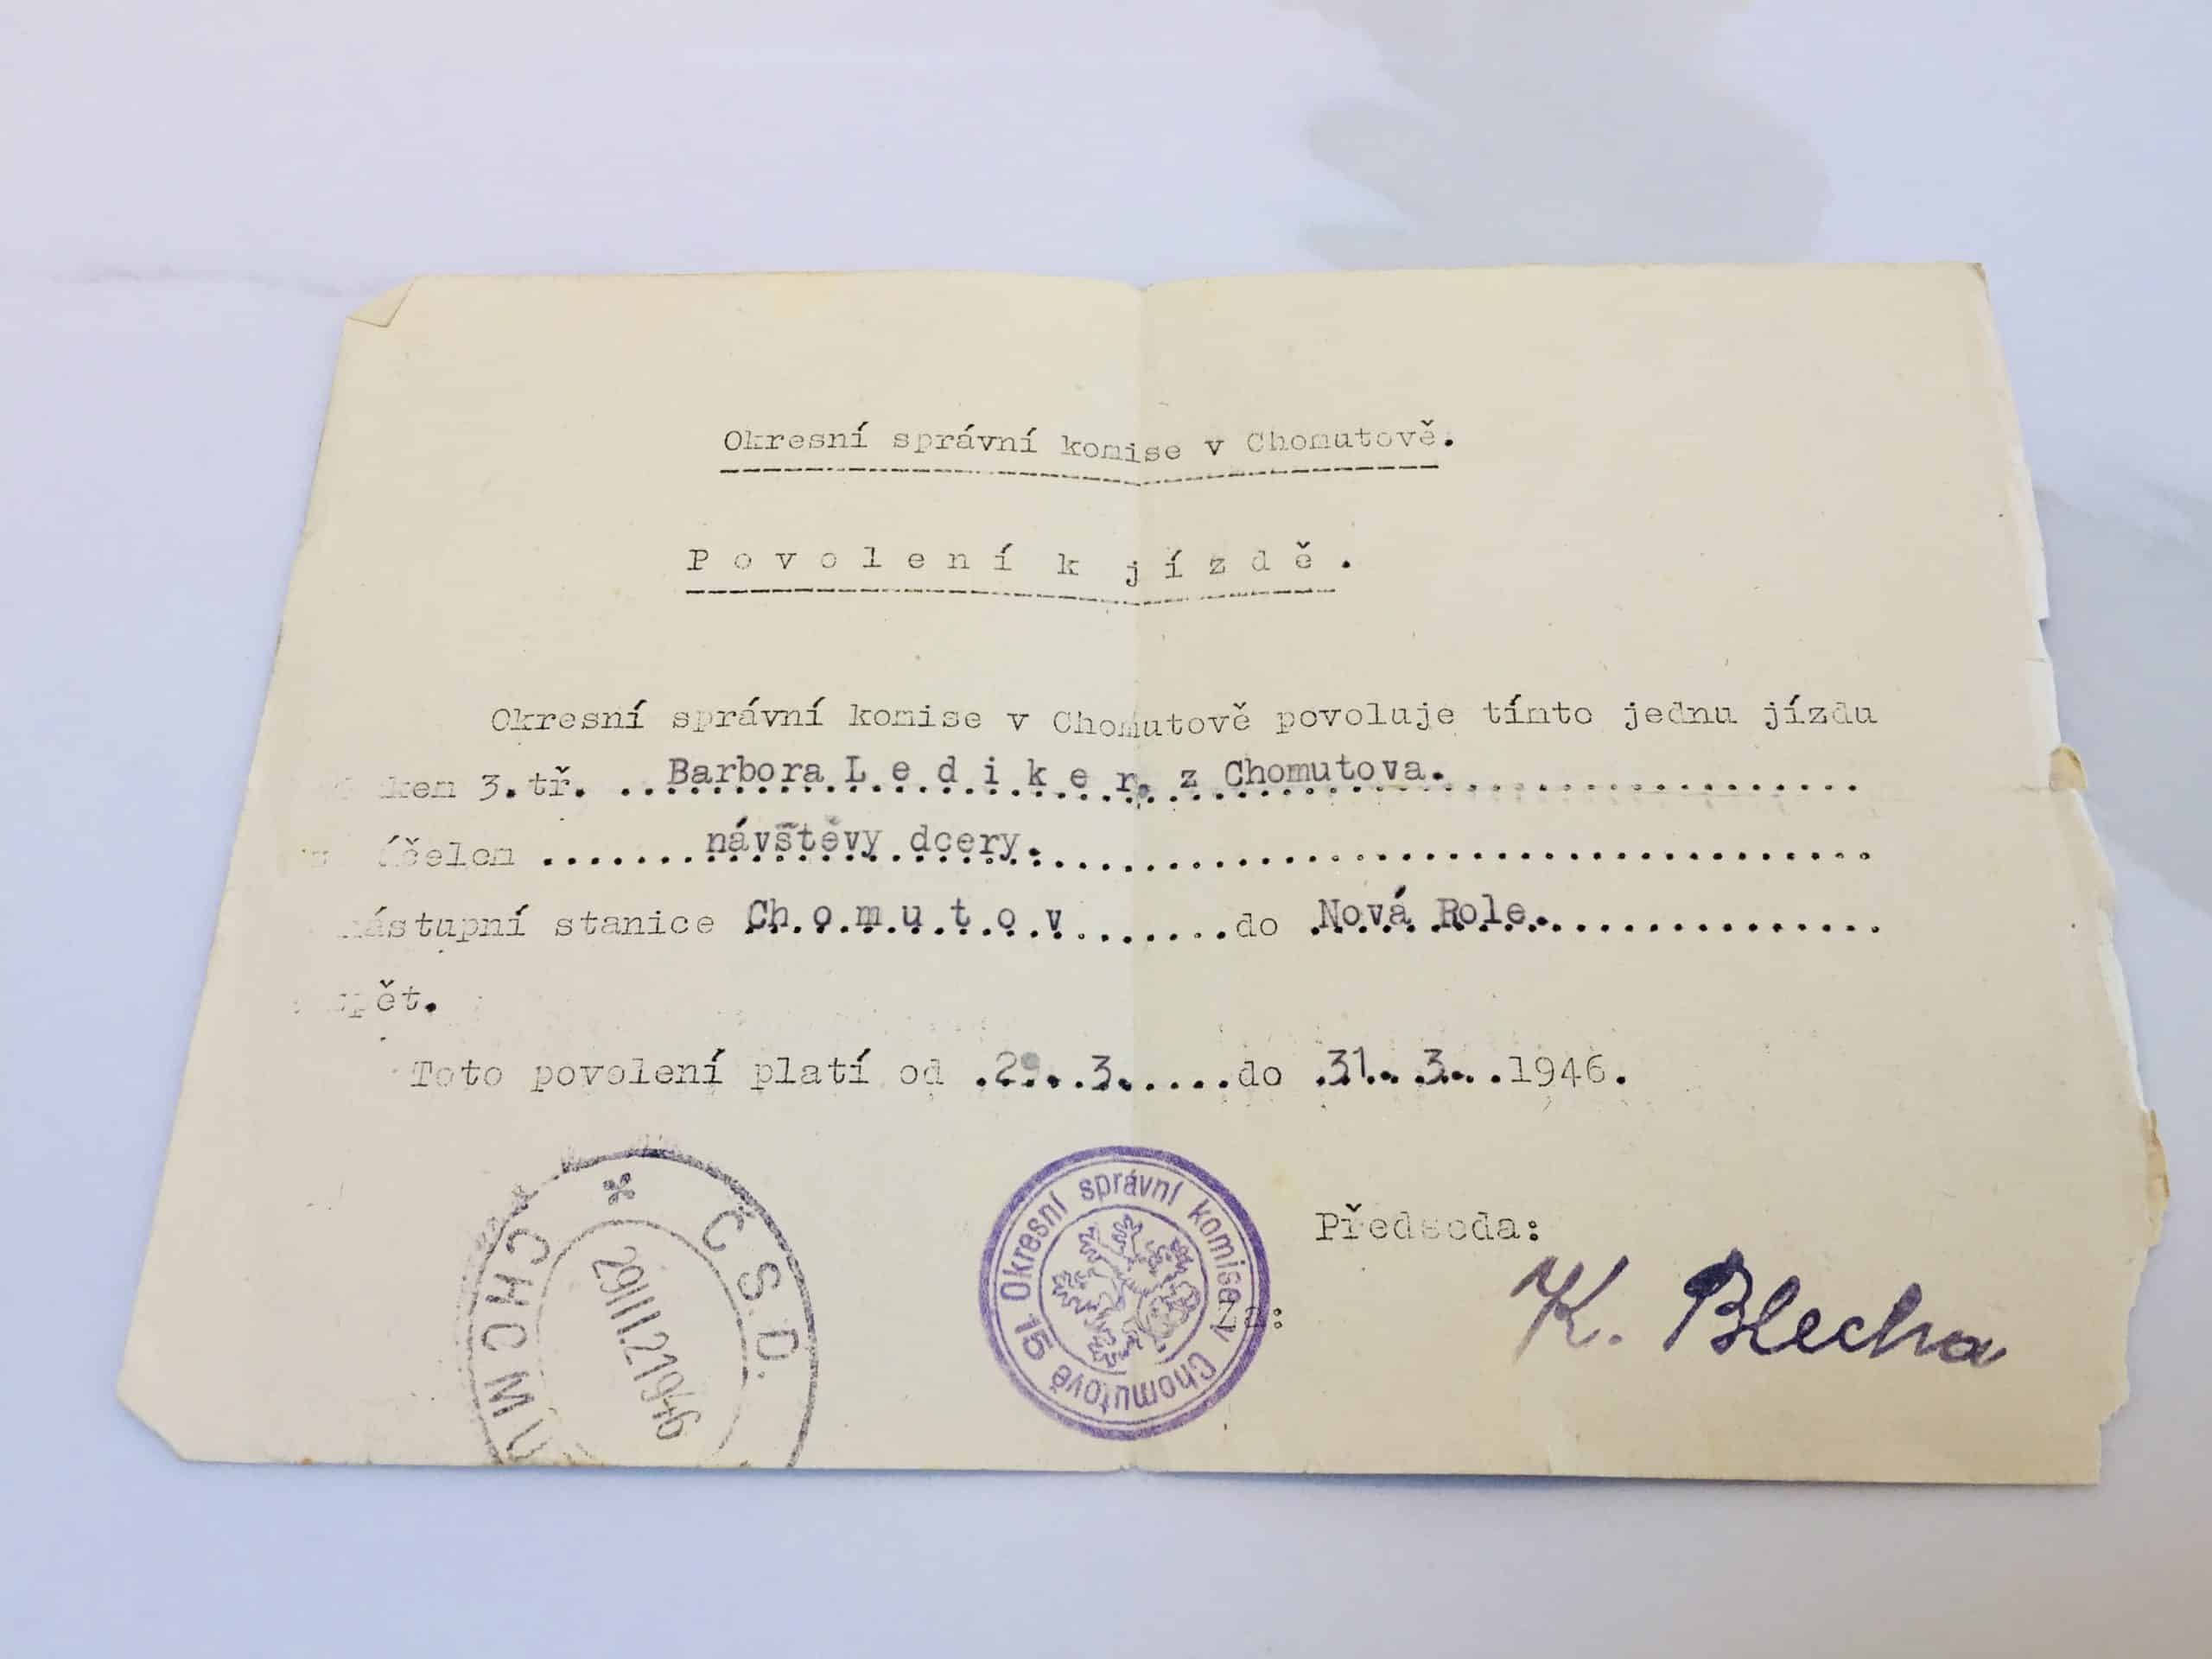 Okresní správní komise v Chomutově.
Povolení k jízdě.
Okresní správní komise v Chomutově povoluje tímto jednu jízdu
3.tř. Barbora Lediker, z Chomutova.
účelem návštěvy dcery.
nástupní stanice Chomutov do Nová Role.
zpět.
Toto povolení platí od 29. 3. do 31. 3. 1946.
Č.S.D.
CHOMU
29III.21946
Okresní správní komise v Chomutově 15
Předseda:
Za:
K. Blecha